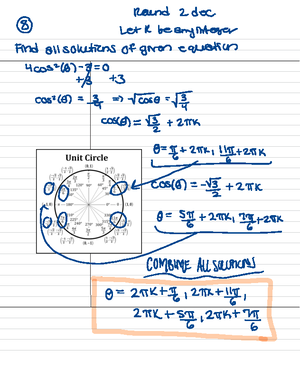 Round 2 dec
⑧ Let K be any integer
Find all solutions of given equation
4cos²(θ) - 3 = 0
+3 +3
cos²(θ) = 3/4 ⇒ √cosθ = √3/4
cos(θ) = √3/2 + 2πK
θ = π/6 + 2πK, 11π/6 + 2πK
Unit Circle
cos(θ) = -√3/2 + 2πK
θ = 5π/6 + 2πK, 7π/6 + 2πK
COMBINE ALL SOLUTIONS
θ = 2πK + π/6, 2πK + 11π/6,
2πK + 5π/6, 2πK + 7π/6